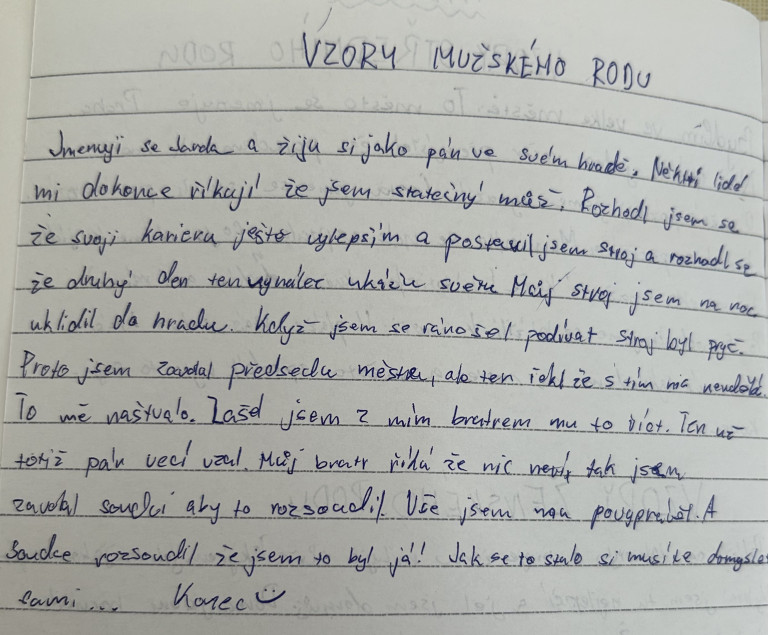 VZORY MUŽSKÉHO RODU
Jmenuji se Jarda a žiju si jako pán ve svém hradě. Někteří lidé
mi dokonce říkají že jsem statečný muž. Rozhodl jsem se
že svoji karieru ještě vylepším a postavil jsem stroj a rozhodl se
že druhý den ten vynálec ukážu světu Můj stroj jsem na noc
uklidil do hradu. Když jsem se ráno šel podívat stroj byl pryč.
Proto jsem zavolal předsedu města, ale ten řekl že s tím nic neudělá.
To mě naštvalo. Zašel jsem z mím bratrem mu to říct. Ten už
totiž pár věcí vzal. Můj bratr říká že nic neví, tak jsem
zavolal soudci aby to rozsoudil. Vše jsem mu povyprávěl. A
Soudce rozsoudil že jsem to byl já! Jak se to stalo si musíte domyslet
sami... Konec